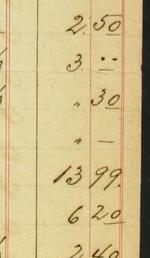 2. 50
3. ··
„ 30
„ —
13 99.
6 20
2 40